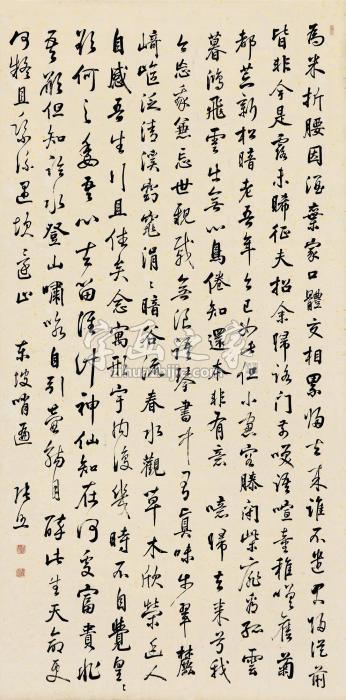 為米折腰因酒棄家口體交相累歸去來誰不遣君歸從前
皆非今是露未晞征夫指余歸路门前笑語喧童稚嗟舊菊
都荒新松暗老吾年今已如此但小窗容膝閉柴扉看孤雲
暮鴻飛雲出無心鳥倦知還本非有意噫歸去來兮我
今忘我兼忘世親戚無浪語琴書中有真味步翠麓
崎嶇泛清溪窈窕涓〻暗谷流春水觀草木欣榮幽人
自感吾生行且休矣念寓形宇内復幾時不自覺皇〻
欲何之委吾心去留誰計神仙知在何處富貴非
吾願但知臨水登山嘯咏自引壺觴自醉此生天命更
何疑且乘流遇坎還止 東坡哨遍 張照
字画之家